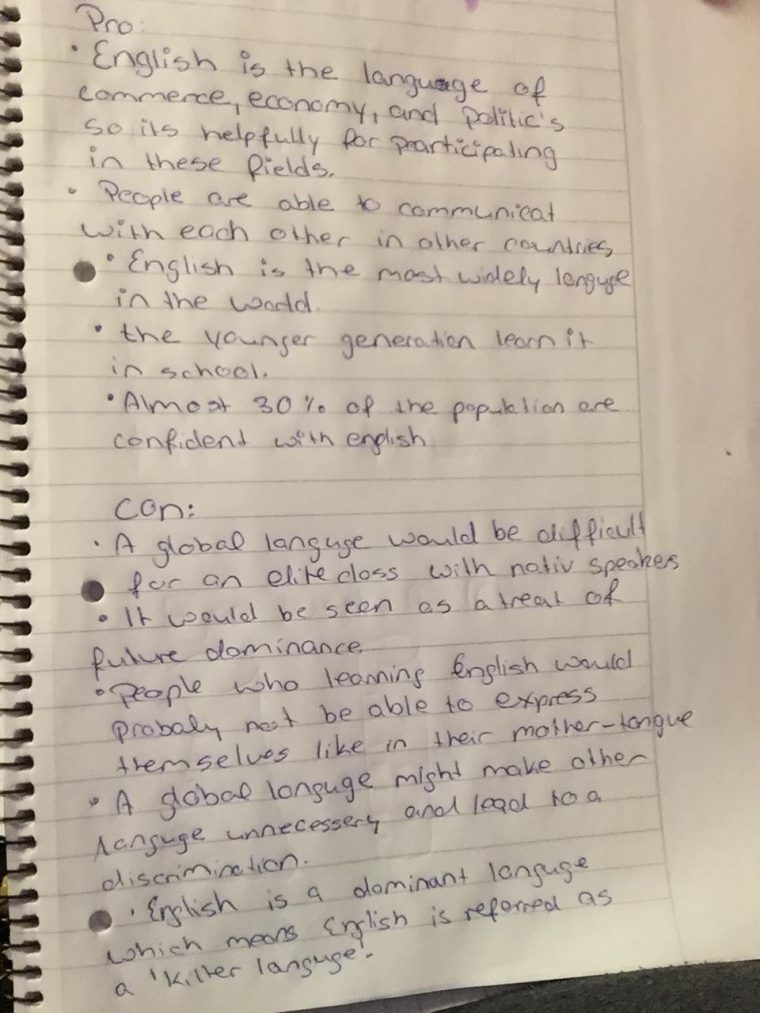 Pro:
• English is the language of
commerce, economy, and politic's
so its helpfully for praticipating
in these fields.
• People are able to communicat
with each other in other countries
• English is the most widely languge
in the world.
• the younger generation learn it
in school.
• Almost 30% of the popultion are
confident with english
con:
• A global languge would be difficult
for an elite class with nativ speakers
• It would be seen as a treat of
future dominance
• People who learning English would
probaly not be able to express
themselves like in their mother-tongue
• A global languge might make other
languge unnecessery and lead to a
discrimination.
• English is a dominant languge
which means English is referred as
a 'killer languge'.